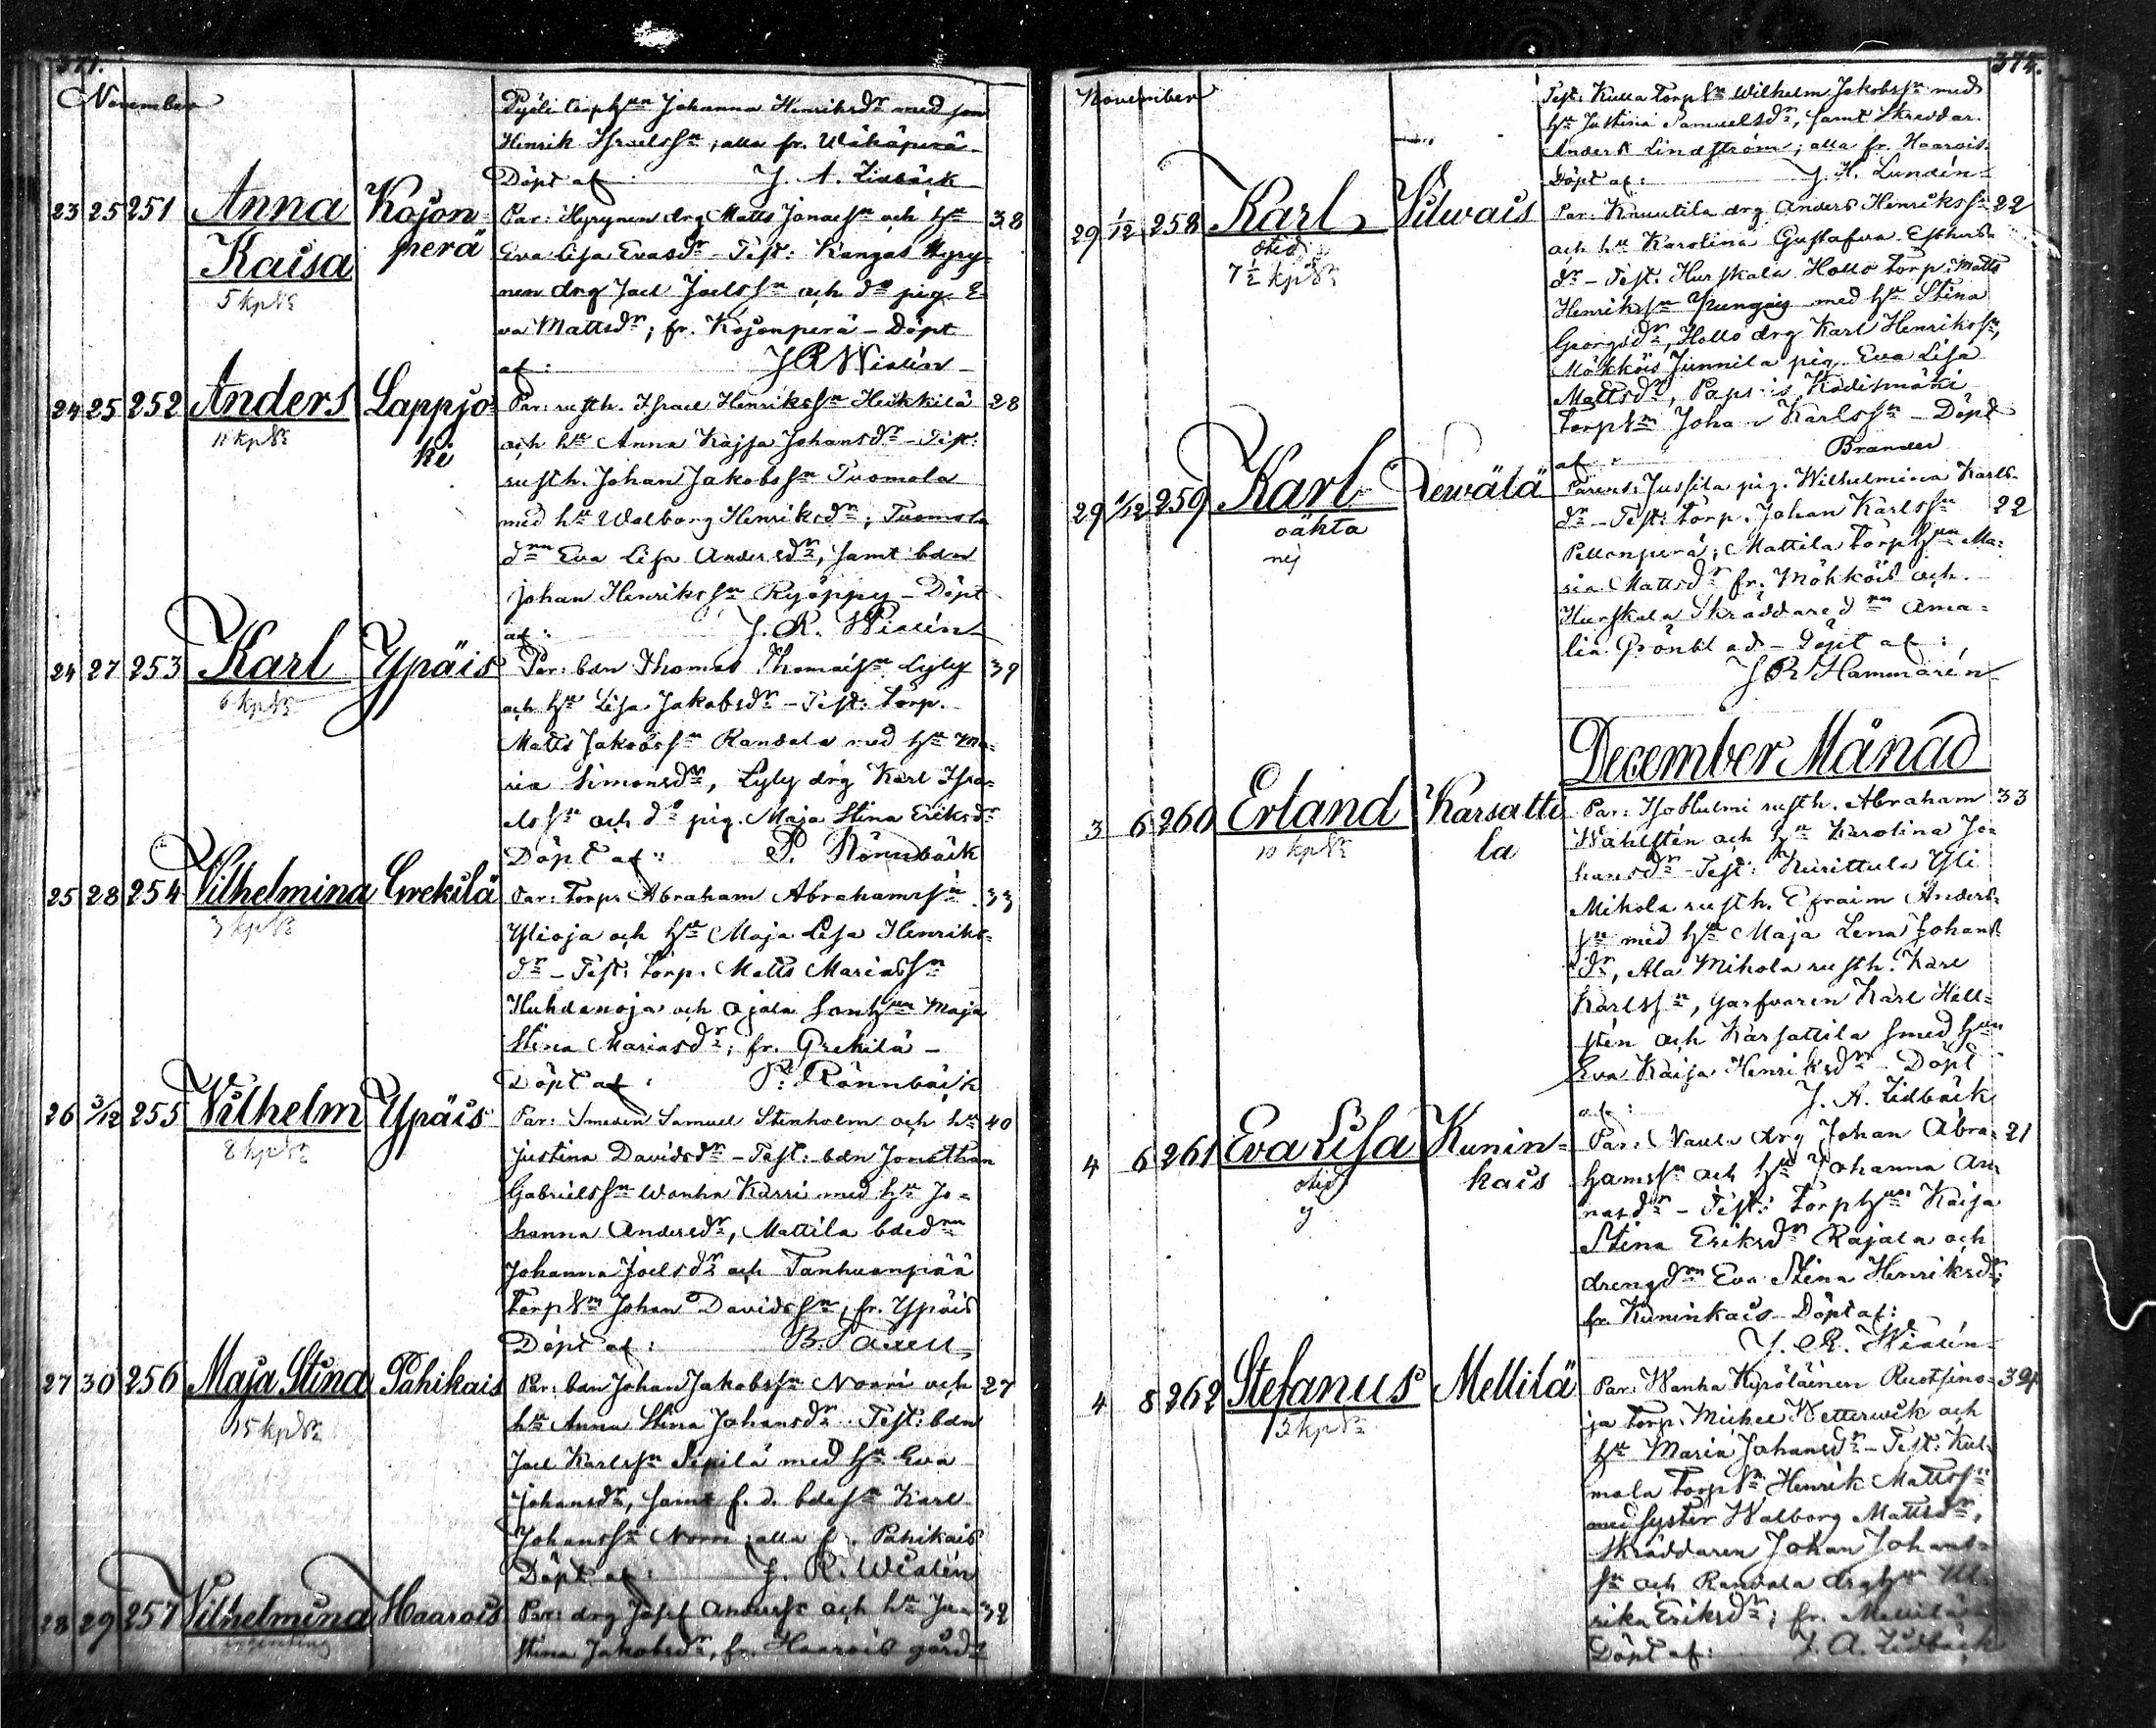 371.
November
Pyöli torphun Johanna Henriksdr med son
Henrik Israelssn, alla fr. Wähäperä
Döpt af: J. A. Lidbäck
23 25 251 Anna Kojon- Par: Hyrynen drg Matts Jonaessn och hu 38
Kaisa perä Eva Lisa Evasdr – Test: Kangas Hyry-
5 kp nen drg Joel Joelssn och do pig. E-
va Mattsdr; fr. Kojonperä – Döpt
af: J R Wialén
24 25 252 Anders Lappjo- Par: rusth. Israel Henrikssn Heikkilä 28
11 kp ki och hu Anna Kajsa Johansdr – Test:
rusth. Johan Jakobssn Tuomola
med hu Walborg Henriksdr; Tuomola
drn Eva Lisa Andersdr, samt bdn
Johan Henrikssn Ryöppy – Döpt
af: J. R. Wialén
24 27 253 Karl Ypäis Par: bdn Thomas Thomassn Lyly 39
6 kp och hu Lisa Jakobsdr – Test: torp.
Matts Jakobssn Randala med hu Ma-
ria Simonsdr, Lyly drg Karl Isra-
elssn och do pig. Maja Stina Eriksdr
Döpt af: P. Rönnbäck
25 28 254 Vilhelmina Grekilä Par: torp. Abraham Abrahamssn 33
3 kp Ylioja och hu Maja Lisa Henriks-
dr – Test: torp. Matts Mariassn
Huhdanoja och Ojala sonhun Maja
Stina Mariasdr; fr. Grekilä –
Döpt af: P. Rönnbäck
26 3/12 255 Vilhelm Ypäis Par: Smeden Samuel Stenholm och hu 40
8 kp Justina Davidsdr – Test: bdn Jonathan
Gabrielssn Wanha Karri med hu Jo-
hanna Andersdr, Mattila bdedrn
Johanna Joelsdr och Tanhuanpää
torpsn Johan Davidssn, fr. Ypäis
Döpt af: B. Saxell
27 30 256 Maja Stina Pahikais Par: bdn Johan Jakobssn Norri och 27
15 kp hu Anna Stina Johansdr – Test: bdn
Joel Karlssn Sepilä med hu Eva
Johansdr, samt f. d. bdesn Karl
Johanssn Norri; alla fr. Pahikais
Döpt af: J. R. Wialén
28 29 257 Vilhelmina Haarois Par: drg Josef Anderssn och hu Ju- 32
ingenting stina Jakobsdr, fr. Haarois gård
November 372.
Test: Kulla torpsn Wilhelm Jakobssn med
hu Justina Samuelsdr, samt Skreddar.
Anders Lindström; alla fr. Haarois
Döpt af: J. K. Lundén
29 1/12 258 Karl Silwais Par: Knuutila drg Anders Henrikssn 22
död och hu Karolina Gustafva Esthers-
7 1/2 kp dr – Test: Hurskala Hollo torp. Matts
Henrikssn med hu Stina
Georgsdr, Hollo drg Karl Henrikssn,
Mökköis Junnila pig. Eva Lisa
Mattsdr, Papsis Kodismäki
torpsn Johan Karlssn – Döpt
af: Brander
29 1/12 259 Karl Lewälä Parens: Jussila pig. Wilhelmina Karls- 22
oäkta dr – Test: torp. Johan Karlssn
nej Pellonperä; Mattila torphun Ma-
ria Mattsdr fr. Mökköis och
Hurskala Skräddaredrn Ama-
lia Grönblad – Döpt af:
J R Hammarén
December Månad
3 6 260 Erland Karsatti- Par: Isotulmi rusth. Abraham 33
10 kp la Wahlstén och hu Karolina Jo-
hansdr – Test: Kurittula Yli
Mikola rusth. Efraim Anders-
sn med hu Maja Lena Johans-
dr, Ala Mikola rusth. Karl
Karlssn, garfvaren Karl Hell-
stén och Karsattila smedhun
Eva Kaisa Henriksdr – Döpt
af: J. A. Lidbäck
4 6 261 Eva Lisa Kunin- Par: Naula drg Johan Abra- 21
död kais hamssn och hu Johanna An-
nasdr – Test: torphun Kaisa
Stina Eriksdr Rajala och
drengdrn Eva Stina Henriksdr;
fr. Kuninkais – Döpt af:
J. R. Wialén
4 8 262 Stefanus Mellilä Par: Wanha Kyröläinen Ruotsino- 34
3 kp ja torp. Michel Wetterwik och
hu Maria Johansdr – Test: Kul-
mala torpsn Henrik Mattssn
med syster Walborg Mattsdr,
Skräddaren Johan Johans-
sn och Randala drghun Ul-
rika Eriksdr; fr. Mellilä
Döpt af: J. A. Lidbäck